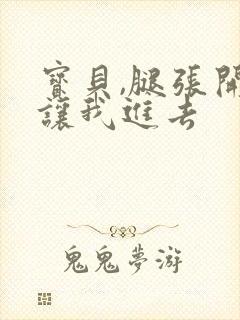 寶貝,腿張開
讓我進去
鬼鬼夢游